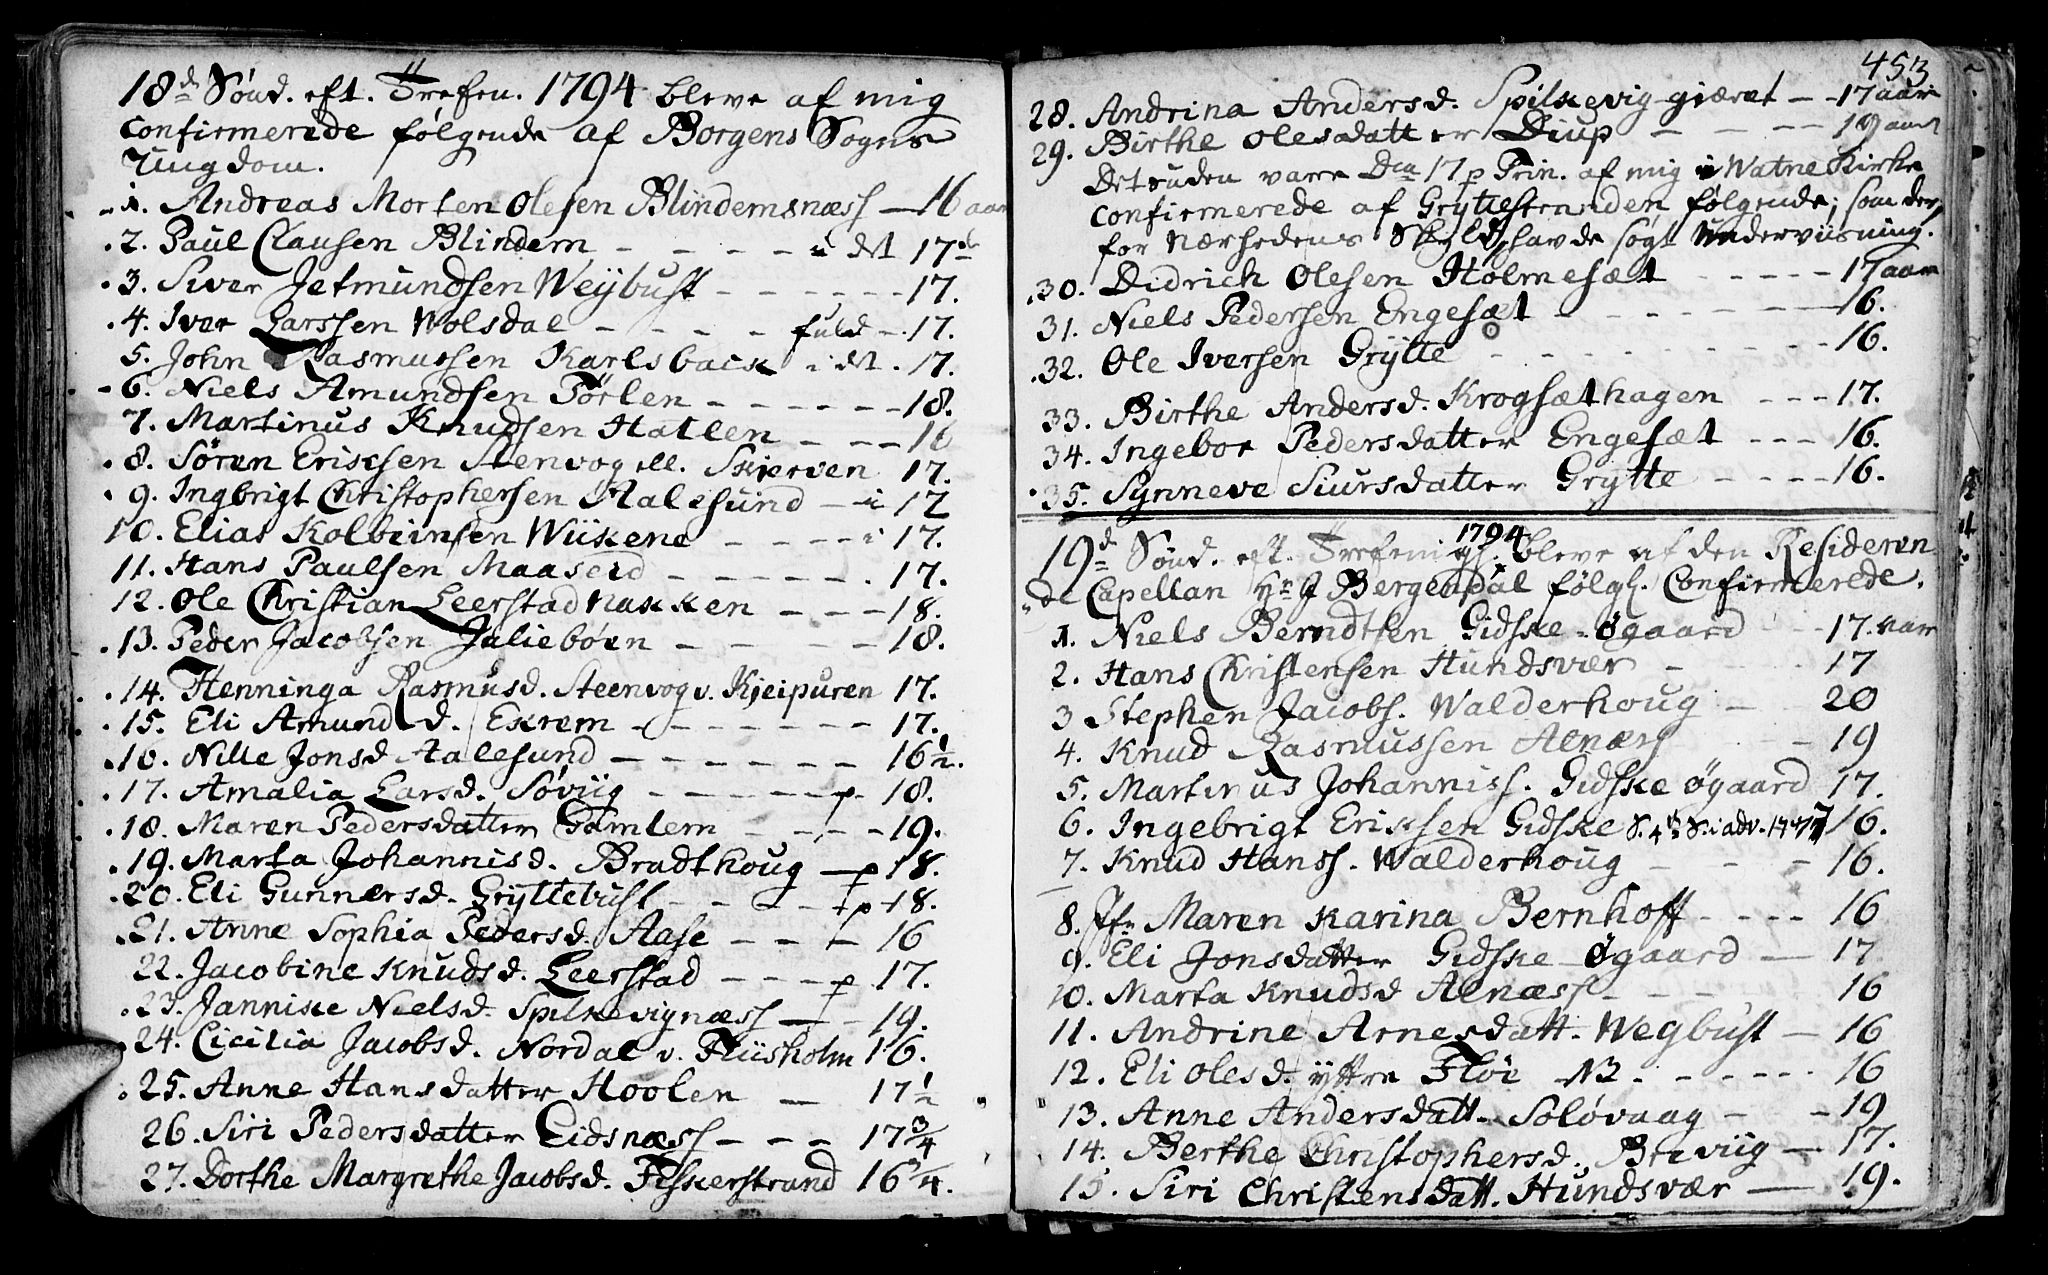 18d Sönd. eft. Trefen. 1794 bleve af mig
Confirmerede følgende af Borgens Sogns
Ungdom.
1. Andreas Morten Olesen Blindemsnæss — 16 aar
2. Paul Clausen Blindem - - - - i det 17de
3. Siver Jetmundsen Weybust - - - - - - 17.
4. Iver Larssen Wolsdal - - - - fuld - 17.
5. John Rasmussen Karlsback i det. 17.
6. Niels Amundsen Tørlen - - - - - - 18.
7. Martinus Knudsen Hatlen - - - 16
8. Søren Ericksen Steenvog ell. Skierven 17.
9. Ingbrigt Christophersen Aalesund — i 17
10. Elias Kolbeinsen Wiikene - - - - i 17.
11. Hans Paulsen Maaseid - - - - - . 17.
12. Ole Christian Leerstadnakken - - - 18.
13. Peder Jacobsen Jaliebøen - - - - 18.
14. Henninga Rasmusd. Steenvog v. Kjeipuren 17.
15. Eli Amundsd. Exrem - - - - - - - 17.
16. Nille Jonsd Aalesund - - - - - - 16 1/2.
17. Amalia Larsd. Søviig - - - - - p. 18.
18. Maren Pedersdatter Gamlem - - - - 19.
19. Marta Johannisd. Bradthoug — p 18.
20. Eli Gunnersd. Gryttebust - - - - p 18.
21. Anne Sophia Pedersd. Aase - - - 16
22. Jacobine Knudsd. Leerstad - - - p 17.
23. Jannike Nielsd. Spilkevignæss — - 19.
24. Cicilia Jacobsd. Nordal v. Fliisholm 16.
25. Anne Hansdatter Hoolen — 17 1/2
26. Siri Pedersdatter Eidsnæss - - - 17 3/4
27. Dorthe Margrethe Jacobsd. Fiskerstrand 16 3/4.
453
28. Andrina Andersd. Spilkevig giæret - - 17 aar
29. Birthe Olesdatter Diup - - - - 19 aar
Desuden vare Den 17 p Trin. af mig i Watne Kirke
Confirmerede af Gryttestranden følgende, som der,
for Nærhedens Skyld, havde søgt Underviisning.
30. Didrich Olesen Holmesæt - - - - - 17 aar
31. Niels Pedersen Engesæt - - - - - - 16.
32. Ole Iversen Grytte - - - - - - - - 16.
33. Birthe Andersd. Krogsæthagen - - - 17.
34. Ingebor Pedersdatter Engesæt - - - 16.
35. Synneve Siursdatter Grytte - - - - 16.
1794
19d Sønd. eft. Trefenigh. bleve af den Resideren
de Capellan Hr J Bergendal følgl. Confirmerede.
1. Niels Berndtsen Gidske-Øgaard - 17. aar
2. Hans Christensen Hundsvær - - 17
3 Stephen Jacobs. Walderhoug - - 20
4. Knud Rasmussen Alnæss - 19
5. Martinus Johanniss. Gidske Øgaard 17.
6. Ingebrigt Ericksen Gidske 16.
7. Knud Hanss. Walderhoug - - - 16.
8. Jfr Maren Karina Bernhoff - - - - 16
9. Eli Jonsdatter Gidske Øgaard — 17
10. Marta Knudsd Alnæss - - - - 16
11. Andrine Arnesdatt. Wegbust — 16
12. Eli Olesd. yttre Fløe NB. - - - - - 16
13. Anne Andersdatt. Soløvaag - - 19
14. Berthe Christophersd. Breviig — 17.
15. Siri Christensdatt. Hundsvær — 19.